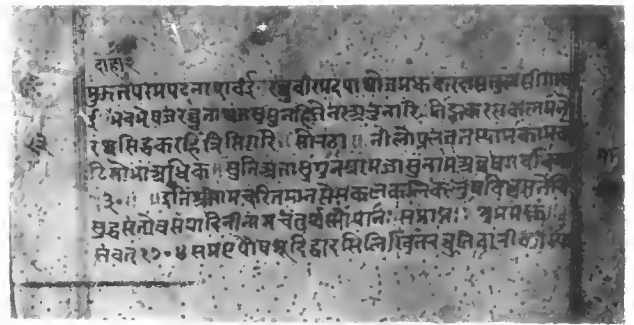 दोहा२
परमपद नर पावई रघुवीर पद पाथोज मधुकर दास तुलसी गावई
भव भेषज रघुनाथ जसु सुनहि जे नर अरु नारि तिन्ह कर सकल मनो
रथ सिद्ध करहिं त्रिसिरारि ॥ सोरठा ॥ नीलोत्पल तन स्याम काम को
टि सोभा अधिक ॥ सुनिअ तासु गुनग्राम जासु नाम अघ षग वधिक
३० ॥ इति श्रीरामचरितमानसे सकलकलिकलुषविध्वंसने वि
सुद्धसंतोषसंपादिनी नाम चतुर्थ सोपानः समाप्तः
संवत १७०४ समए पौष शुदि द्वादसि लिषितं रघु तिवारी